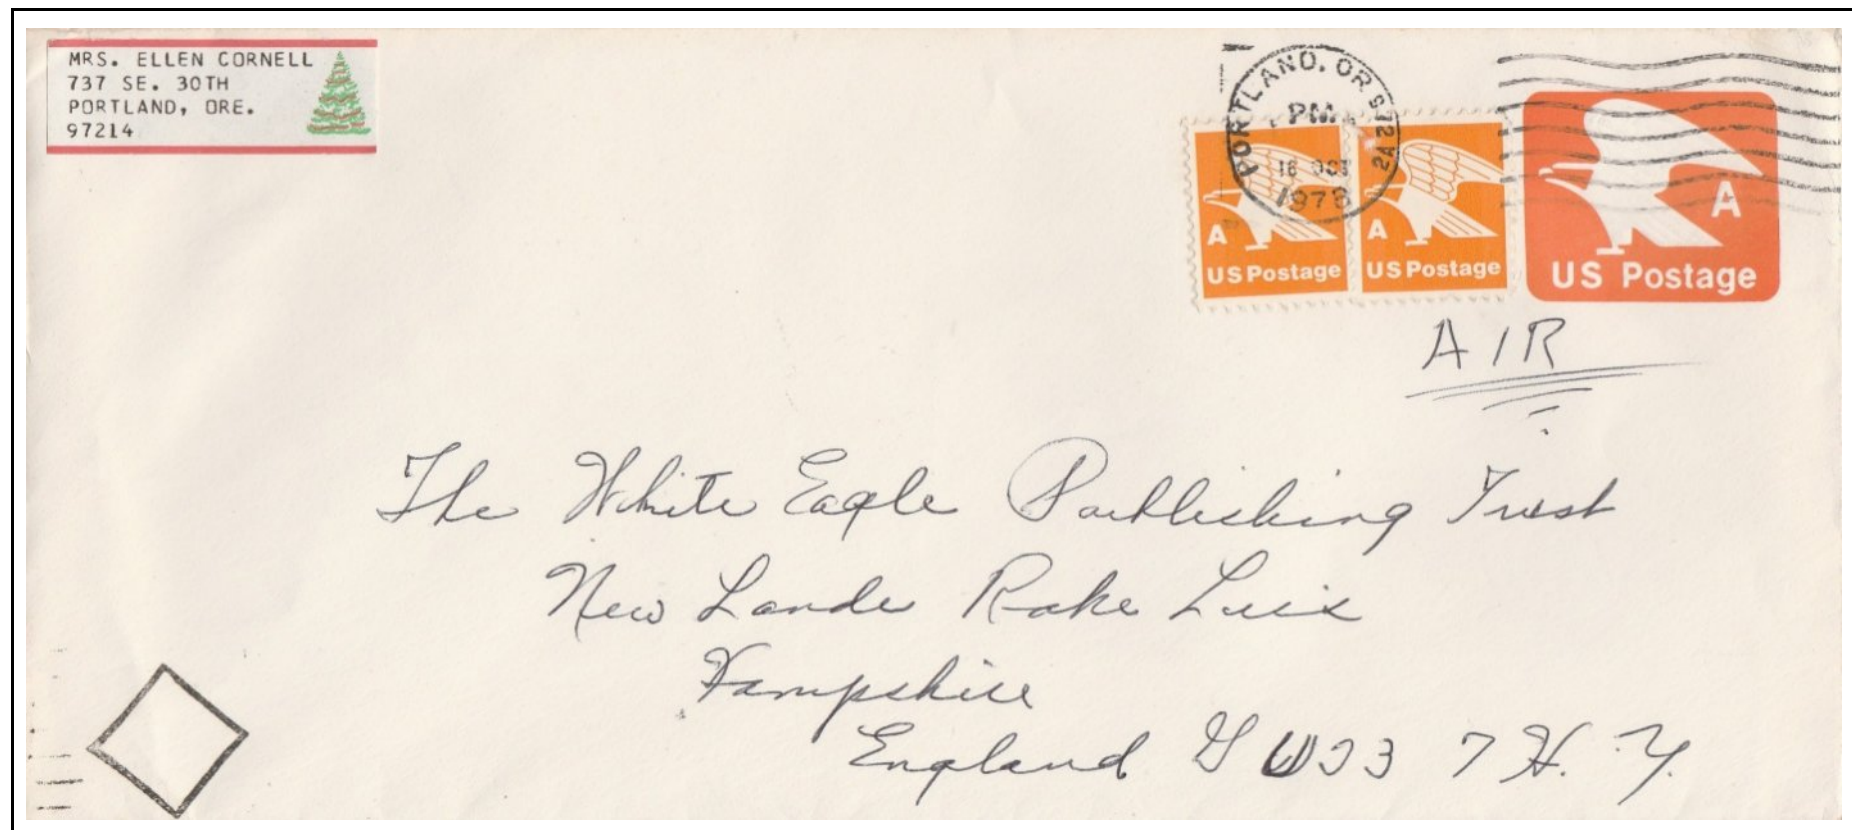 MRS. ELLEN CORNELL
737 SE. 30TH
PORTLAND, ORE.
97214
PORTLAND, OR 972
PM
16 OCT
1978
2A
A
US Postage
A
US Postage
A
US Postage
AIR
The White Eagle Publishing Trust
New Lands Rake Luis
Hampshire
England GU33 7 H.Y.